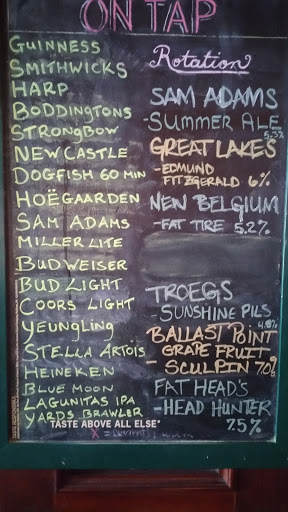 ON TAP
GUINNESS
SMITHWICKS
HARP
BODDINGTONS
STRONGBOW
NEWCASTLE
DOGFISH 60 MIN
HOËGAARDEN
SAM ADAMS
MILLER LITE
BUDWEISER
BUD LIGHT
COORS LIGHT
YEUNGLING
STELLA ARTOIS
HEINEKEN
BLUE MOON
LAGUNITAS IPA
YARDS BRAWLER
Rotation
SAM ADAMS
-SUMMER ALE
5.3%
GREAT LAKES
-EDMUND
FITZGERALD 6%
NEW BELGIUM
-FAT TIRE 5.2%
TROEGS
-SUNSHINE PILS
BALLAST POINT
- GRAPE FRUIT
SCULPIN 7.0%
FAT HEAD'S
-HEAD HUNTER
7.5%
TASTE ABOVE ALL ELSE"